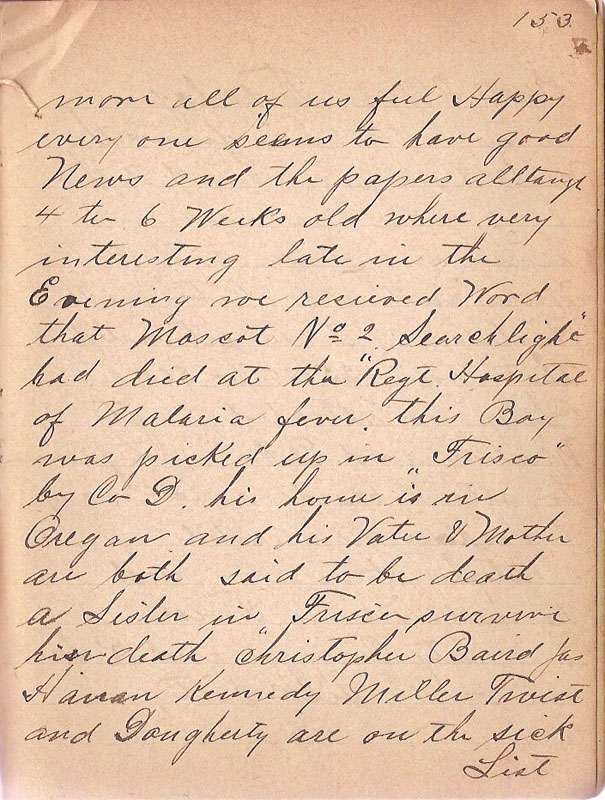 153
more all of us ful Happy
every one seems to have good
News and the papers alltough
4 to 6 Weeks old where very
interesting late in the
Evening we resieved Word
that Mascot No 2 Searchlight"
had died at the "Regt. Hospital
of Malaria fever. this Boy
was picked up in "Frisco"
by Co D. his home is in
Oregan and his Vater & Mother
are both said to be death
a Sister in Frisco survive
his death Christopher Baird Jas
Hanan Kennedy Miller Twist
and Dougherty are on the sick
List